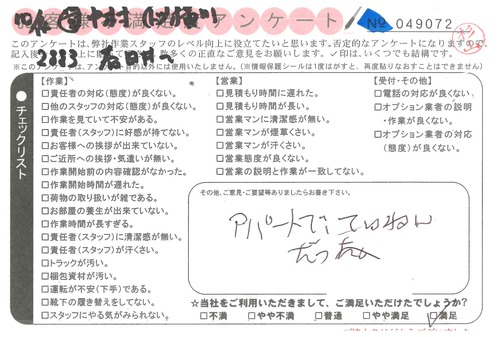 アンケート
No 049072
このアンケートは、弊社作業スタッフのレベル向上に役立てたいと思います。否定的なアンケートになりますので、
多くの正直なご意見をお願いします。✓印はいくつでも結構です。
チェックリスト
【作業】
□責任者の対応(態度)が良くない。
□他のスタッフの対応(態度)が良くない。
□作業を見ていて不安がある。
□責任者(スタッフ)に好感が持てない。
□お客様への挨拶が出来ていない。
□ご近所への挨拶・気遣いが無い。
□作業開始前の内容確認がなかった。
□作業開始時間が遅れた。
□荷物の取り扱いが雑である。
□お部屋の養生が出来ていない。
□作業時間が長すぎる。
□責任者(スタッフ)に清潔感が無い。
□責任者(スタッフ)が汗くさい。
□トラックが汚い。
□梱包資材が汚い。
□運転が不安(下手)である。
□靴下の履き替えをしてない。
□スタッフにやる気がみられない。
【営業】
□見積もり時間に遅れた。
□見積もり時間が長い。
□営業マンに清潔感が無い。
□営業マンが煙草くさい。
□営業マンが汗くさい。
□営業態度が良くない。
□営業の説明と作業が一致してない。
【受付・その他】
□電話の対応が良くない。
□オプション業者の説明
・作業が良くない。
□オプション業者の対応
(態度)が良くない。
その他、ご意見・ご要望等ありましたらお書き下さい。
アパートでていねい
だった
☆当社をご利用いただきまして、ご満足いただけたでしょうか?
□不満 □やや不満 □普通 □やや満足 ☑満足